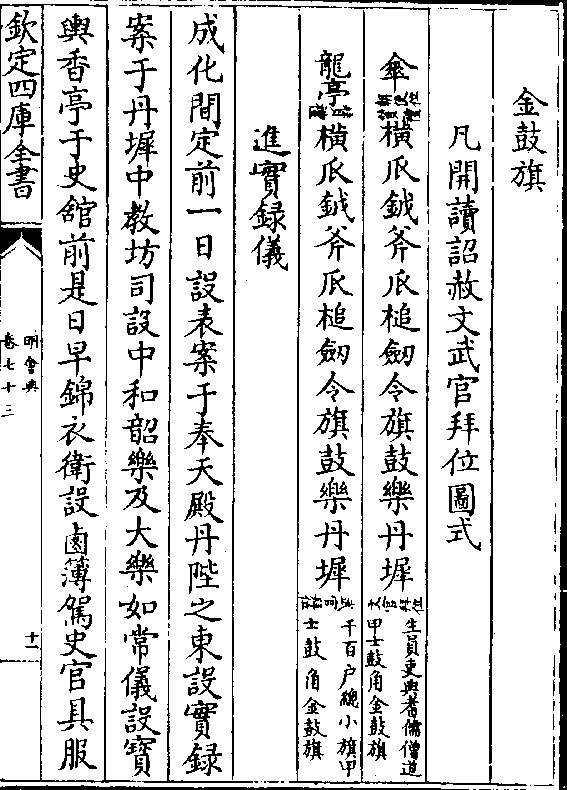 金鼓旗
凡開讀詔赦文武官拜位圖式
傘橫瓜鉞斧瓜槌劒令旗鼓樂丹墀
生員吏典耆儒僧道
甲士鼓角金鼓旗
龍亭橫瓜鉞斧瓜槌劒令旗鼓樂丹墀
千百户總小旗甲
士鼓角金鼓旗
進實録儀
成化間定前一日設表案于奉天殿丹陛之東設實録
案于丹墀中教坊司設中和韶樂及大樂如常儀設寶
輿香亭于史舘前是日早錦衣衛設鹵簿駕史官具服
欽定四庫全書
明會典
卷七十三
十一